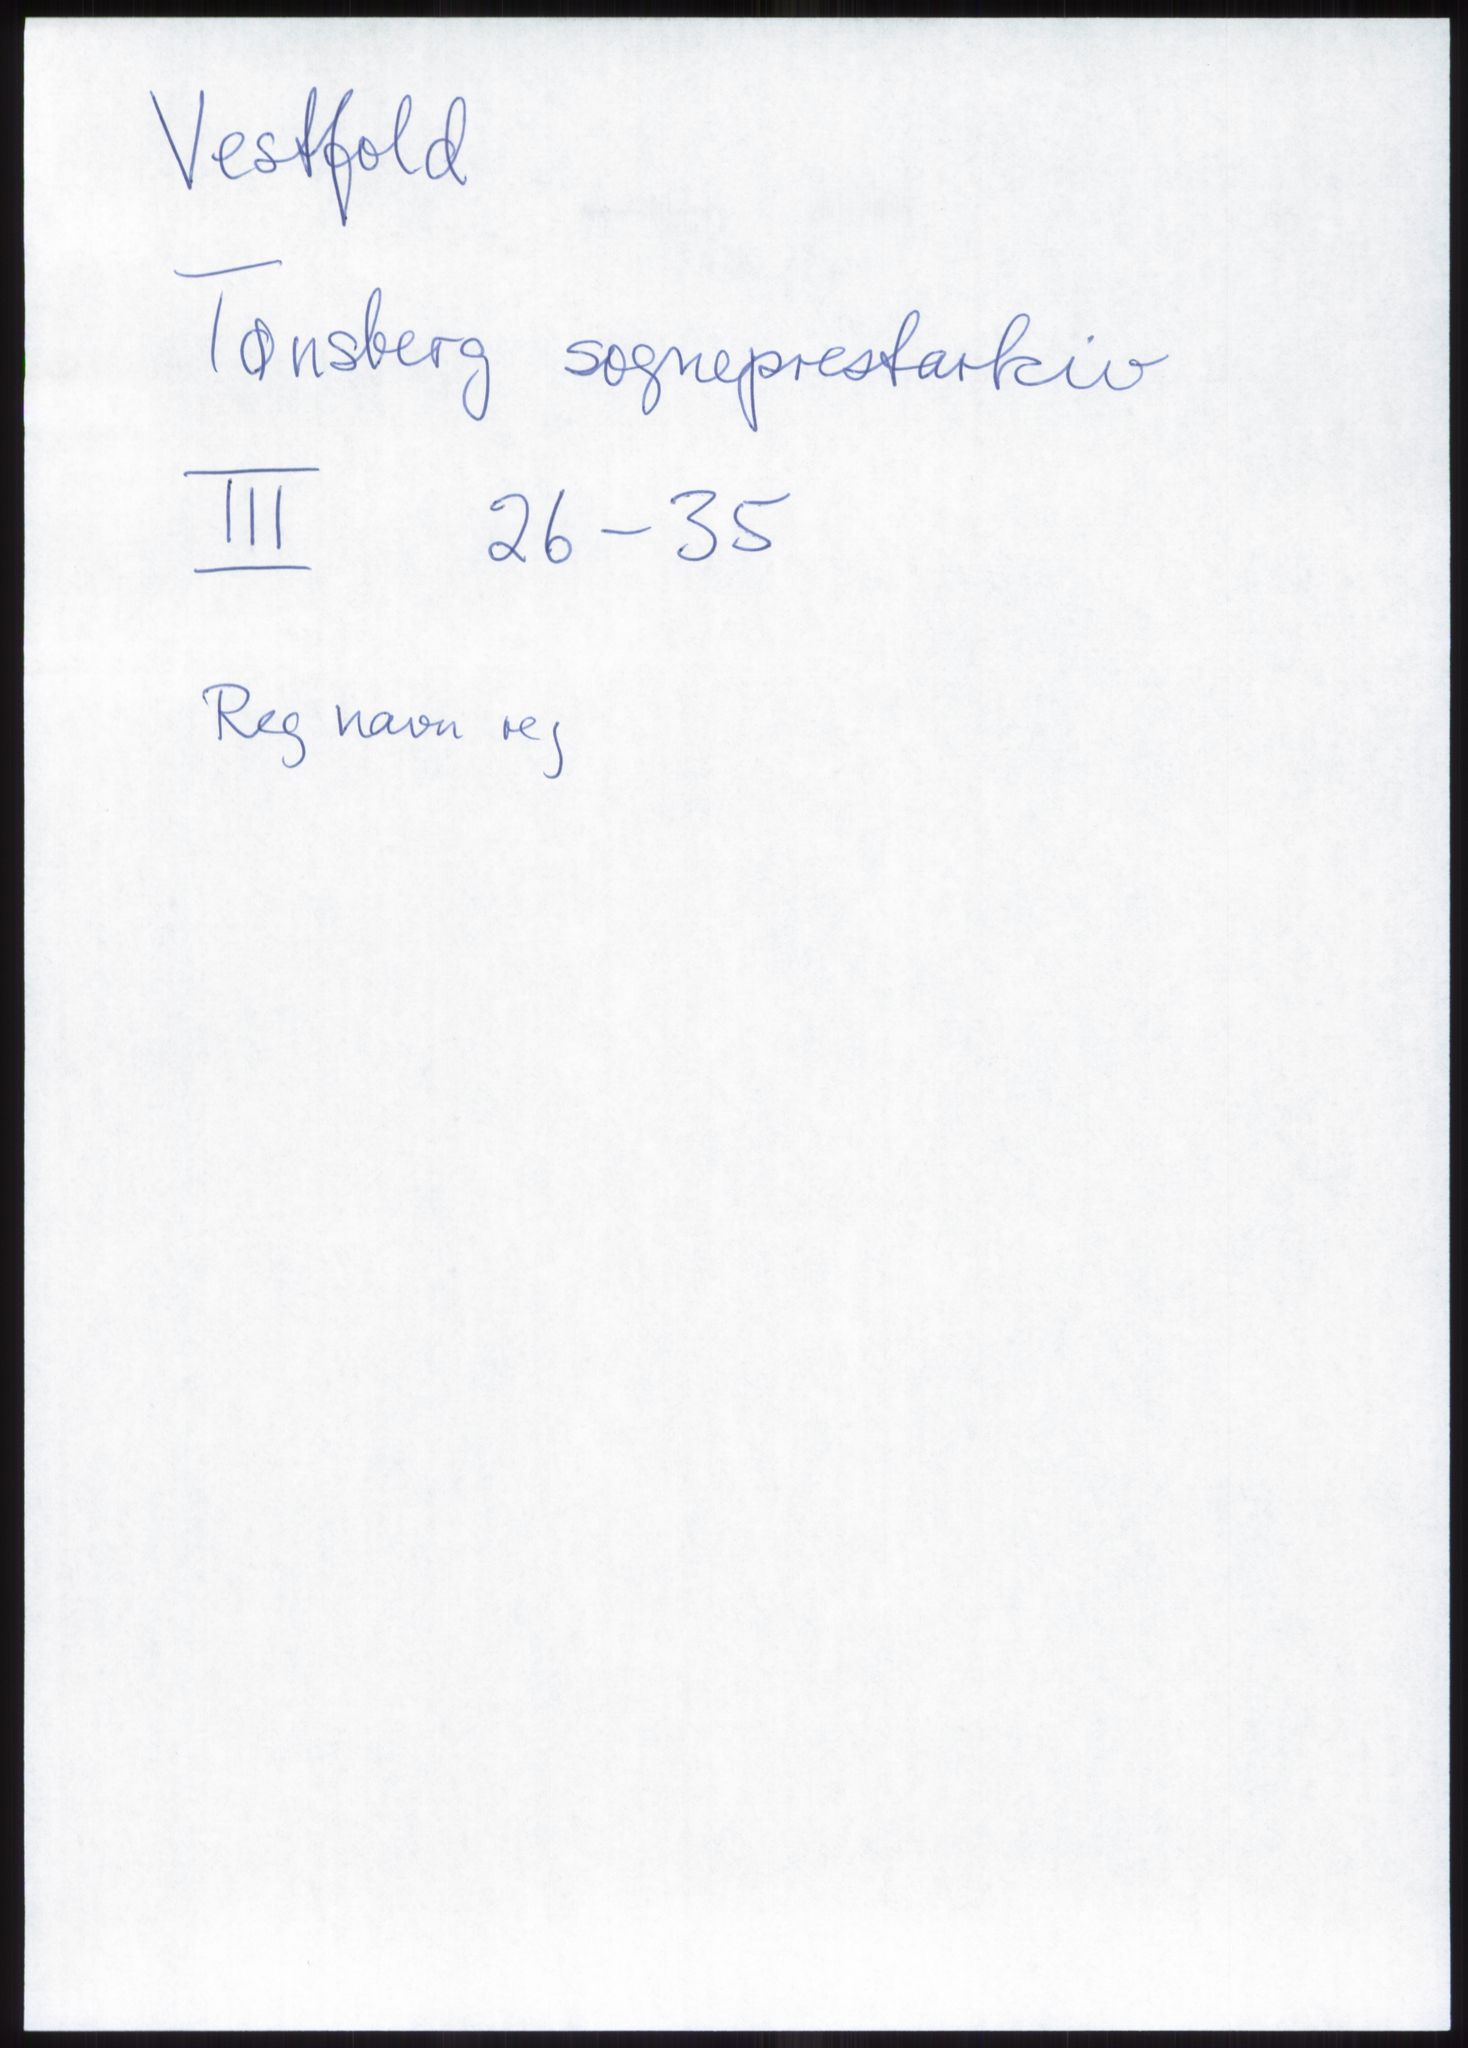 Vestfold
Tønsberg sogneprestarkiv
III 26-35
Reg navn reg